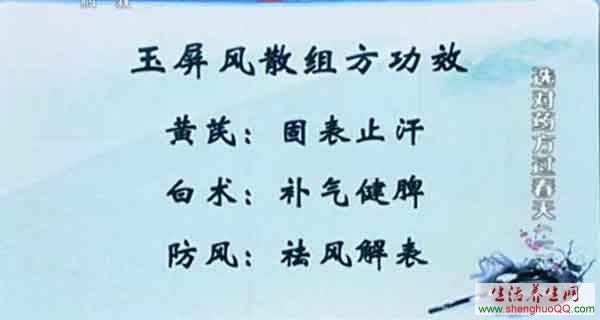 玉屏风散组方功效
黄芪：固表止汗
白术：补气健脾
防风：祛风解表
选对药方过春天
生活养生网
www.shenghuoQQ.com